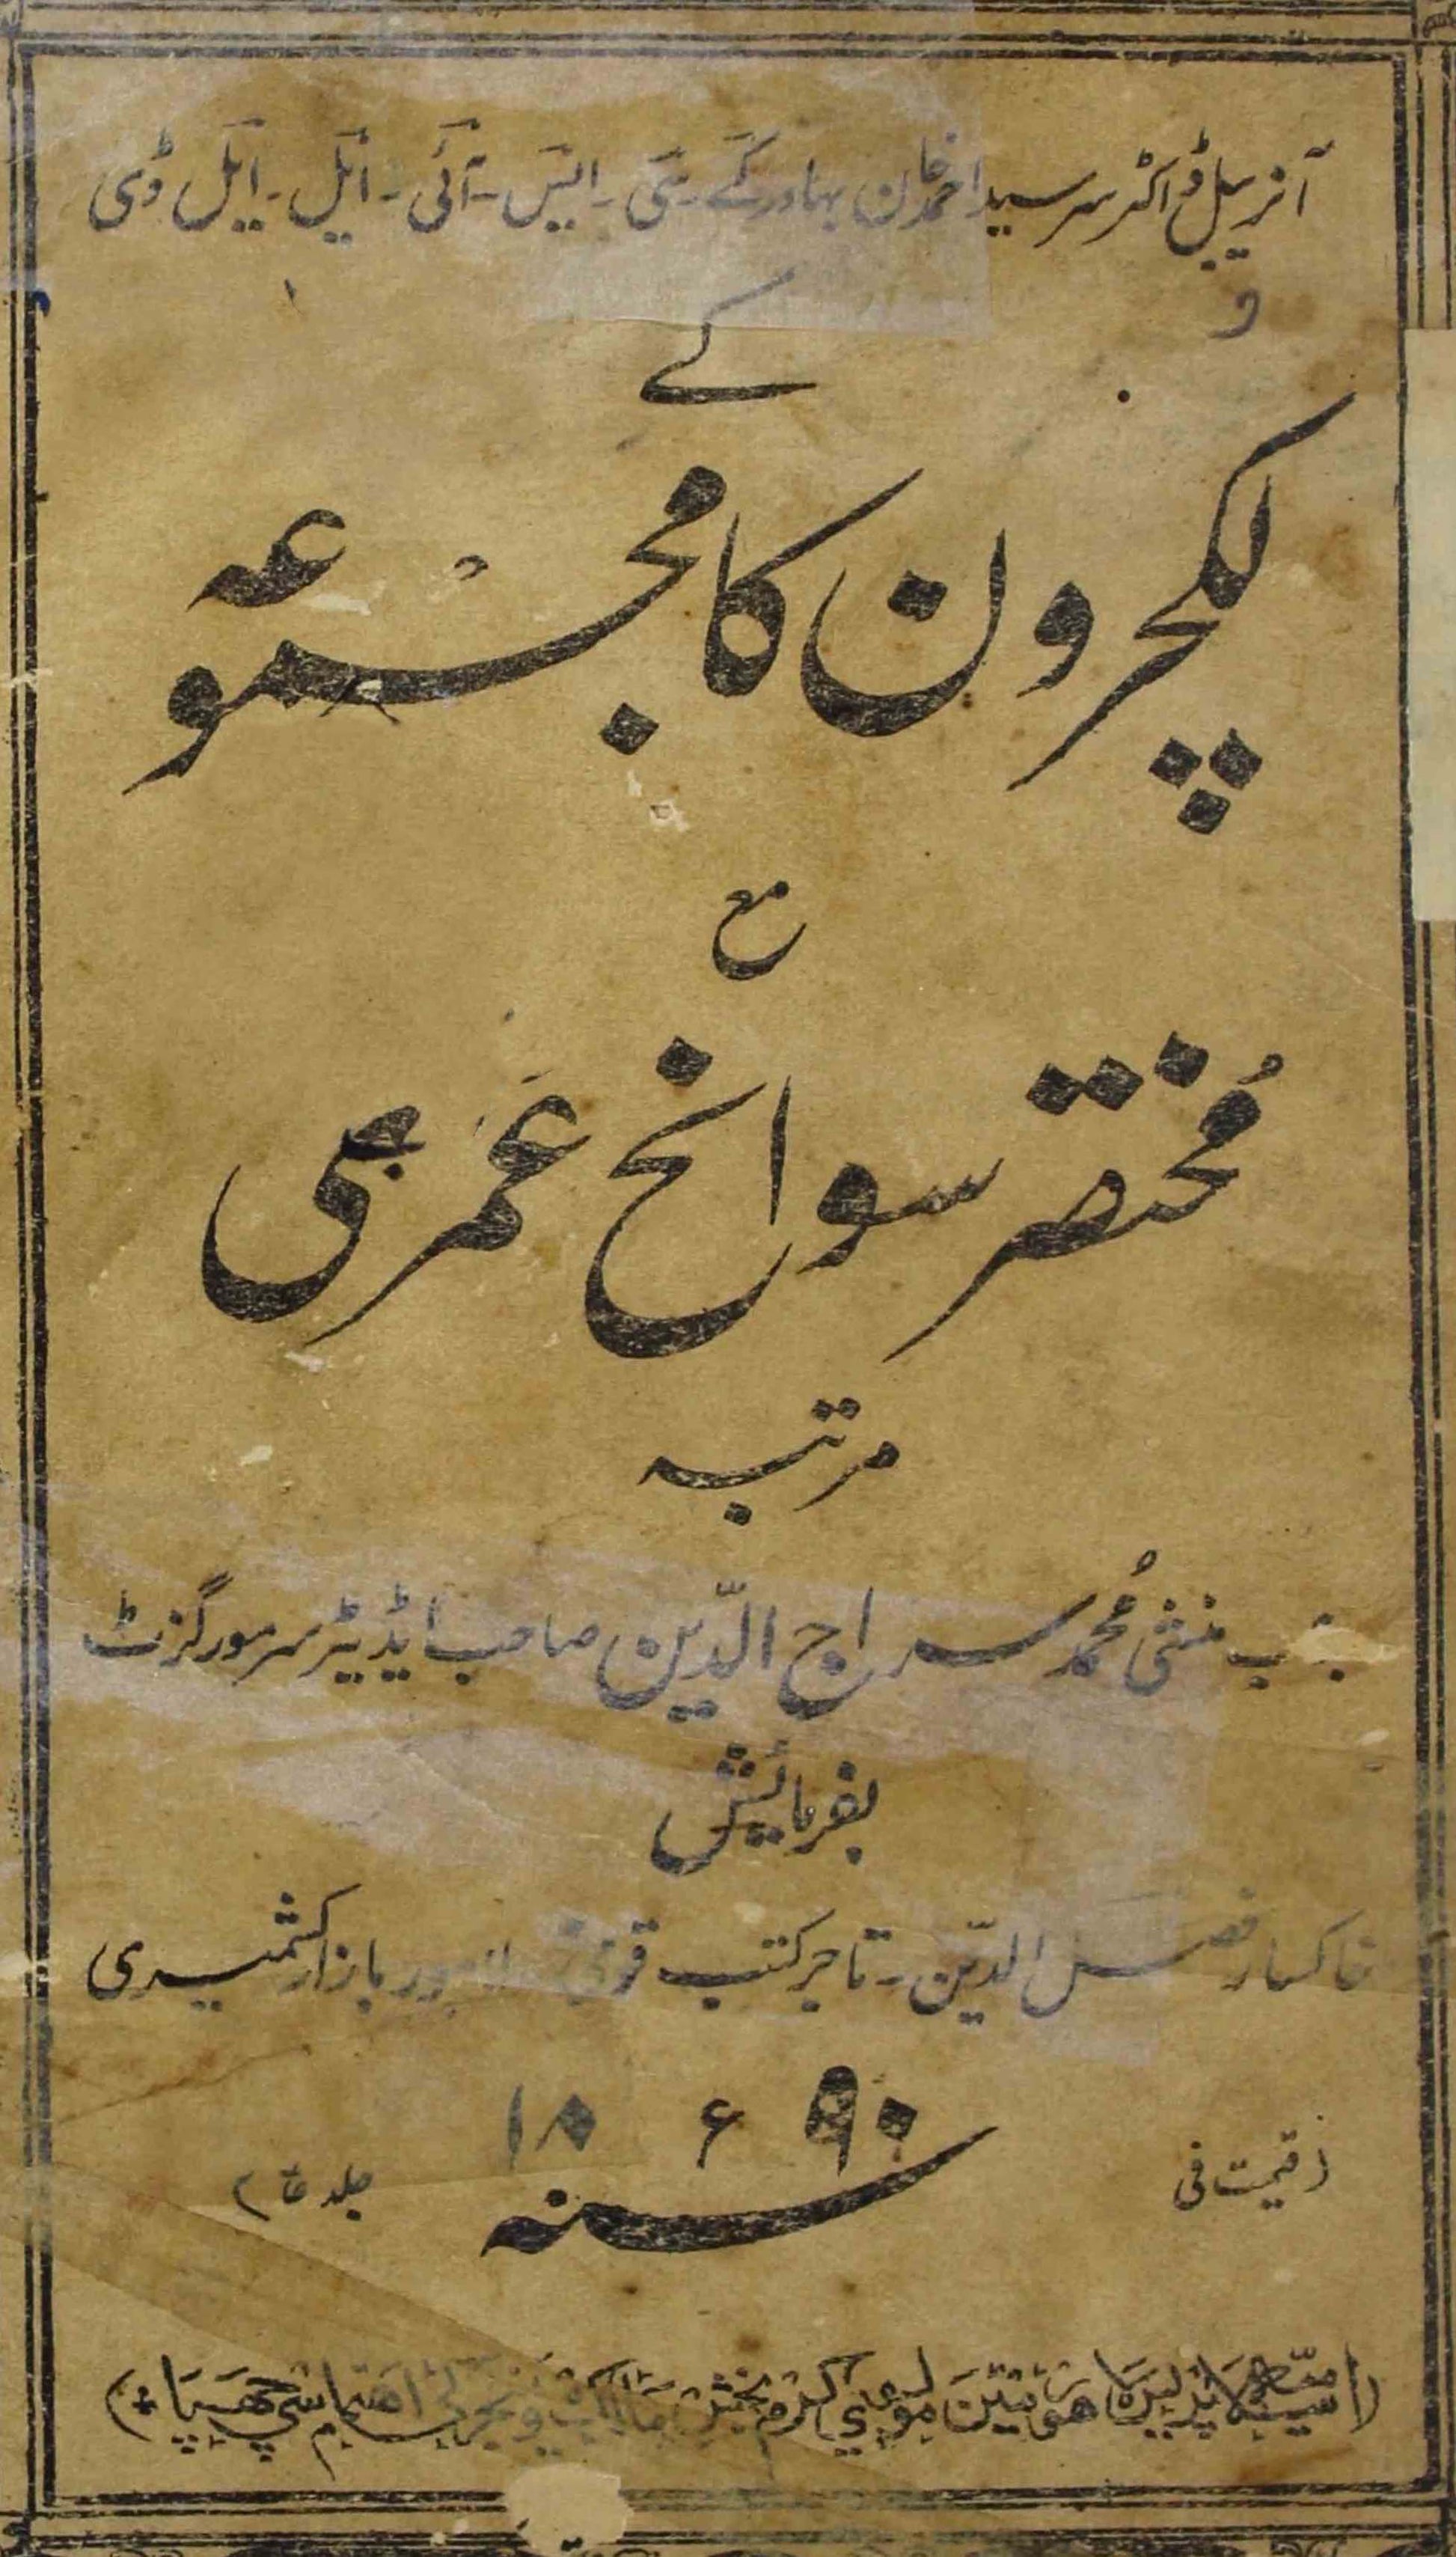 آنریبل ڈاکٹر سرسید احمد خان بہادر کے۔ سی۔ ایس۔ آئی۔ ایل۔ ایل ڈی
کے
لکچرون کا مجموعہ
مع
مُختصر سوانح عُمری
مرتبہ
جناب منشی مُحمد سراج الدّین صاحب ایڈیٹر سرمور گزٹ
بفرمائیش
خاکسار فضل الدّین۔ تاجر کتب قومی لاہور بازار کشمیری
۱۸۹۰ء
سنہ
قیمت فی جلد
مولوی کریم بخش اهتمام سی چهپا